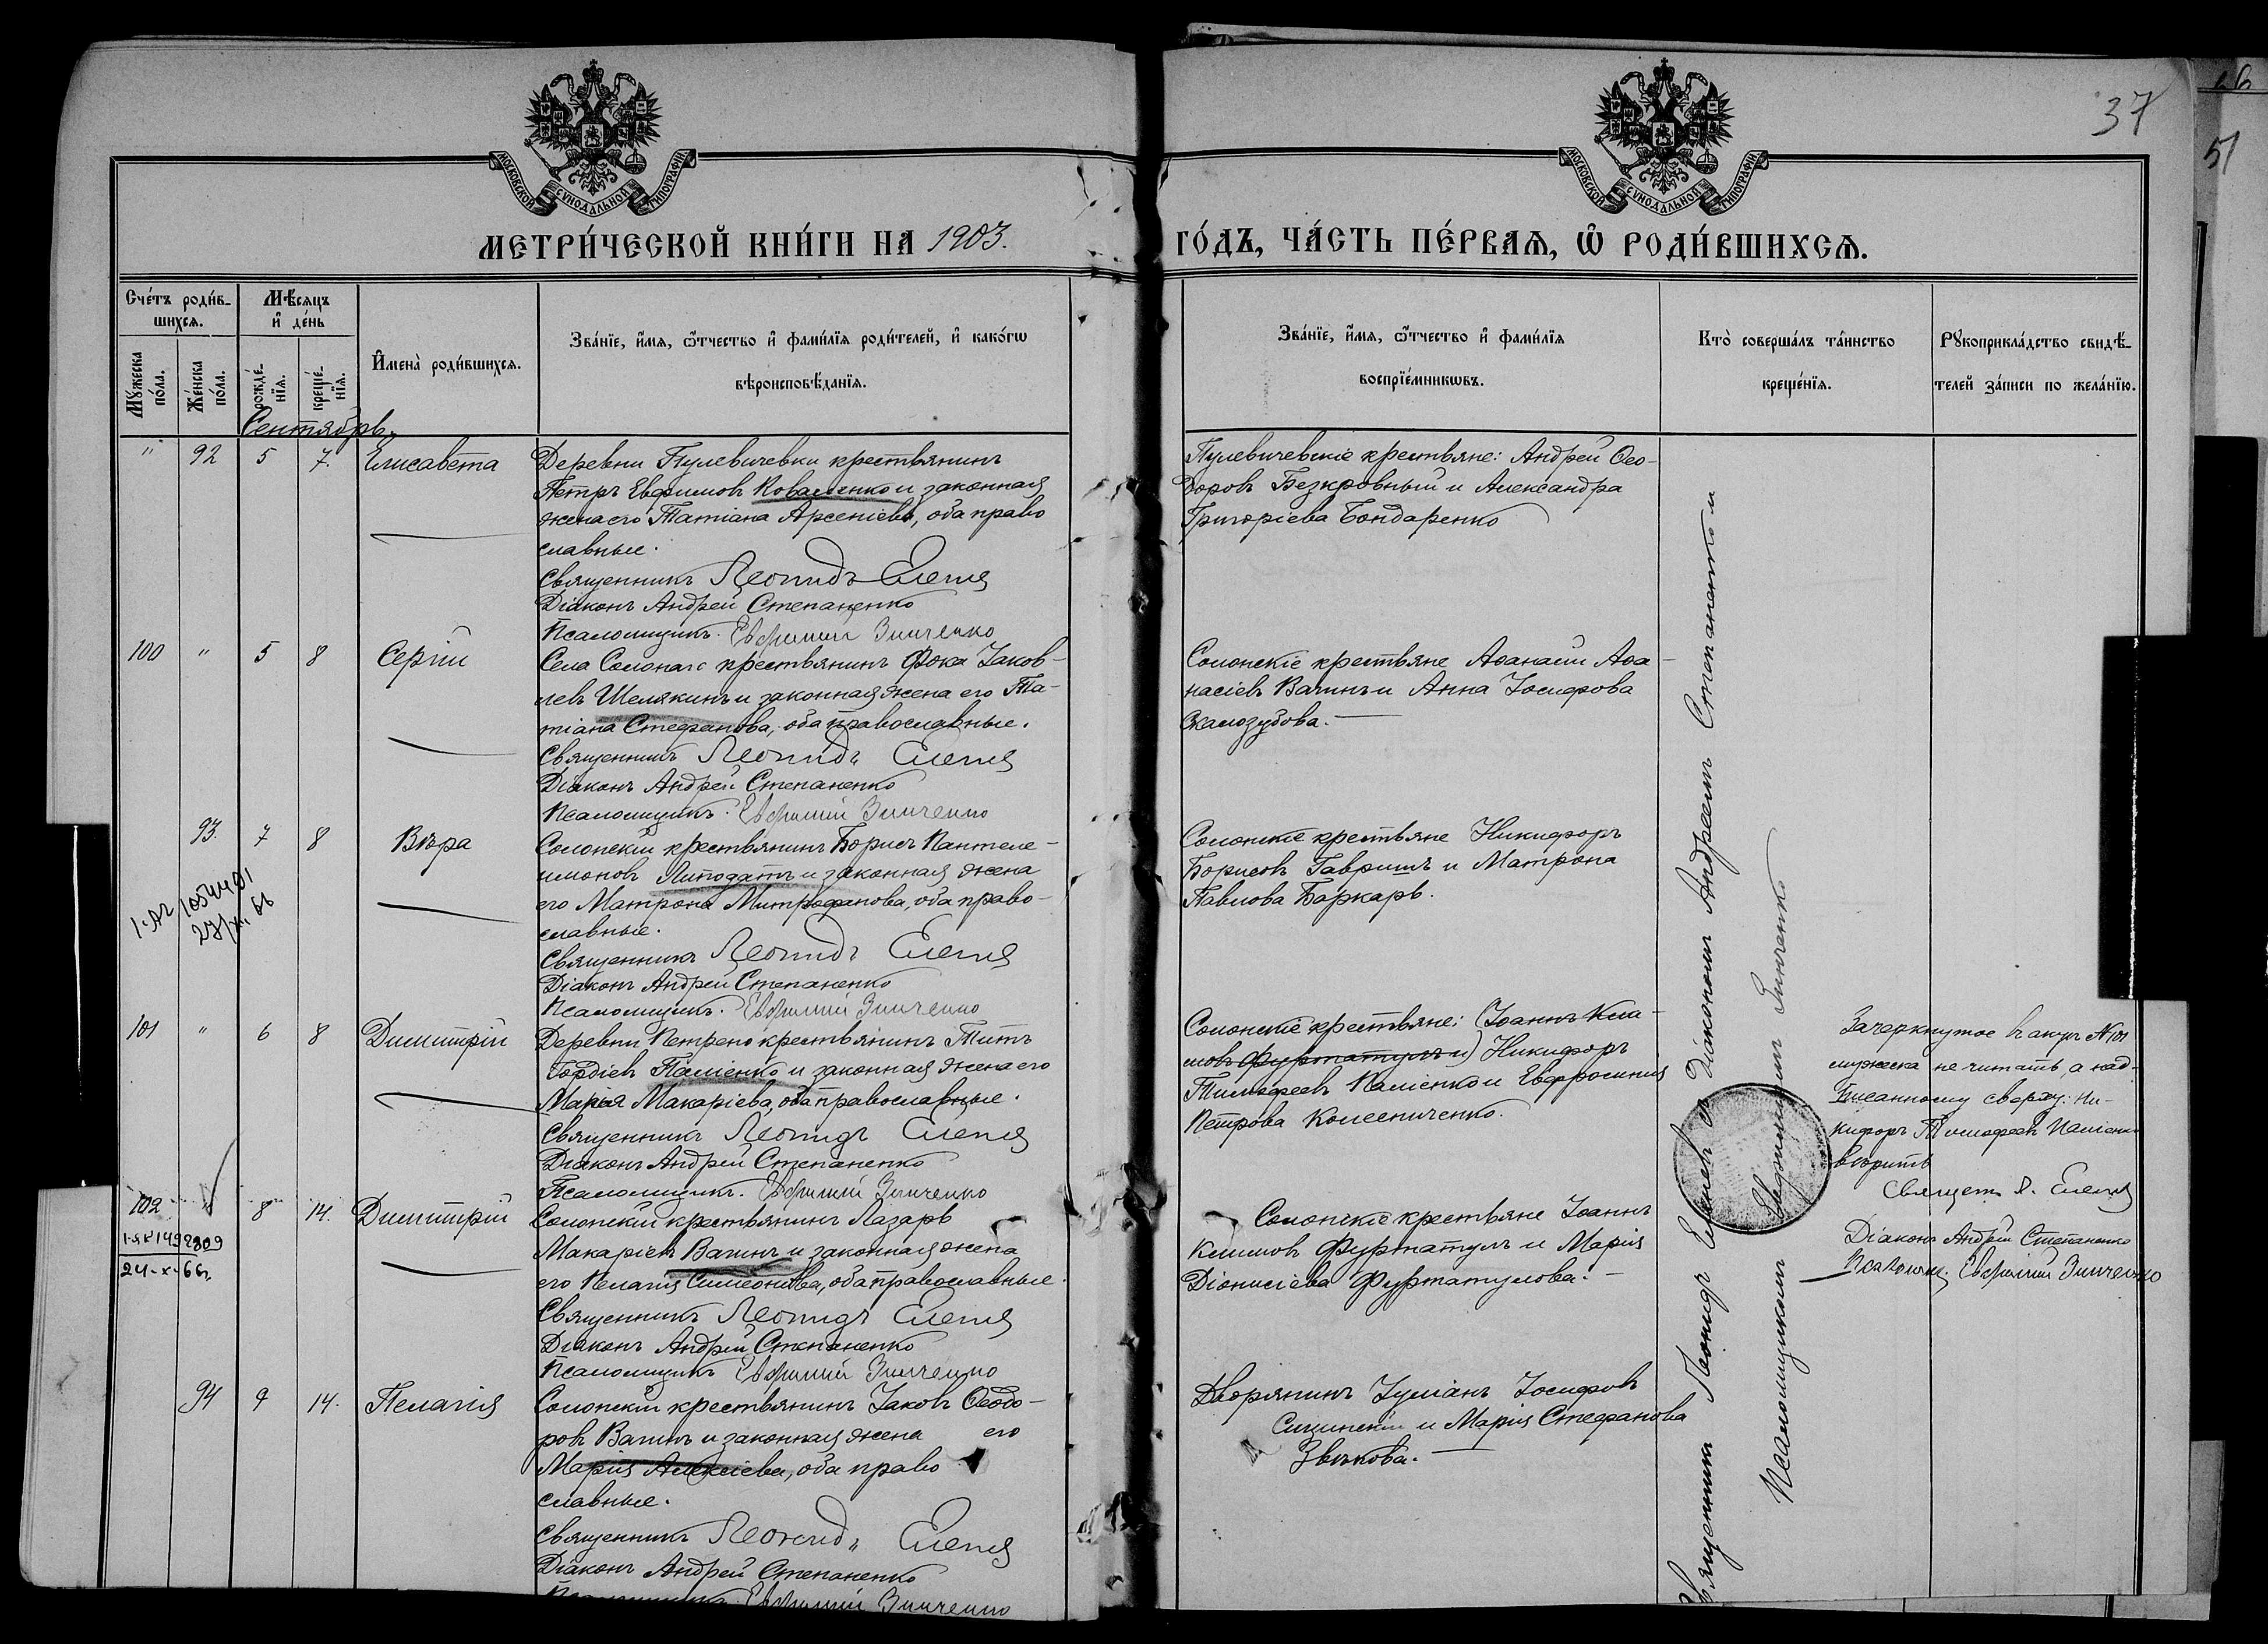 37
51
МОСКОВСКОЙ СѴНОДАЛЬНОЙ ТИПОГРАФІИ
МОСКОВСКОЙ СѴНОДАЛЬНОЙ ТИПОГРАФІИ
МЕТРИ́ЧЕСКОЙ КНИ́ГИ НА 1903.
ГО́ДЪ, ЧА́СТЬ ПЕ́РВАѦ, Ѡ҆ РОДИ́ВШИХСѦ.
Сче́тъ роди́в-
шихсѧ.
Мѣ́сѧцъ
и҆ де́нь
Мꙋ́жеска
по́ла.
Же́нска
по́ла.
рожде́-
нїѧ.
креще́-
нїѧ.
И҆мена̀ роди́вшихсѧ.
Зва́нїе, и҆́мѧ, ѻ҆́тчество и҆ фами́лїѧ роди́телей, и҆ како́гѡ
вѣроисповѣ́данїѧ.
Зва́нїе, и҆́мѧ, ѻ҆́тчество и҆ фами́лїѧ
воспрїе́мникѡвъ.
Кто̀ соверша́лъ та́инство
креще́нїѧ.
Рꙋкоприкла́дство свидѣ́-
телей за́писи по жела́нїю.
Сентябрь
" 92 5 7. Елисавета
Деревни Пулевичевки крестьянинъ
Петръ Евфимовъ Коваленко и законная
жена его Татіана Арсеніева, оба право
славные.
Священникъ Леонидъ Еленев
Діаконъ Андрей Степаненко
Псаломщикъ. Евфимий Зинченко
Пулевичевскіе крестьяне: Андрей Ѳео-
доровъ Безкровный и Александра
Григоріева Бондаренко
100 " 5 8 Сергій
Села Солонаго крестьянинъ Фока Іаков-
левъ Шелякинъ и законная жена его Та-
тіана Стефанова, оба православные.
Священникъ Леонидъ
Діаконъ Андрей Степаненко
Псаломщикъ. Евфимий Зинченко
Солонскіе крестьяне Аѳанасій Аѳа-
насіевъ Вагинъ и Анна Іосифова
Скалозубова.
93. 7 8 Вѣра
Солонскій крестьянинъ Борисъ Пантеле-
имоновъ Липодатъ и законная жена
его Матрона Митрофанова, оба право-
славные.
Священникъ Леонидъ
Діаконъ Андрей Степаненко
Псаломщикъ. Евфимий Зинченко
Солонскіе крестьяне Никифоръ
Борисовъ Гавришъ и Матрона
Павлова Боркарь.
101 " 6 8 Димитрій
Деревни Петрено крестьянинъ Титъ
Гордіевъ Паліенко и законная жена его
Марія Макаріева, оба православные.
Священникъ Леонидъ
Діаконъ Андрей Степаненко
Псаломщикъ. Евфимий Зинченко
Солонскіе крестьяне: (Іоаннъ Кли-
мовъ Фуртатулъ и) Никифоръ
Тимофеевъ Паліенко и Евфросинія
Петрова Колесниченко.
Зачеркнутое въ актѣ №101
мужеска не читать, а над-
писанному сверху: Ни-
кифоръ Тимофеевъ Паліенко
вѣрить
Священ. Л.
Діаконъ Андрей Степаненко
Псаломщ. Евфимий Зинченко
102 8 14. Димитрій
24-X-66г.
Солонскій крестьянинъ Лазарь
Макаріевъ Вагинъ и законная жена
его Пелагія Симеонова, оба православные.
Священникъ Леонидъ
Діаконъ Андрей Степаненко
Псаломщикъ Евфимий Зинченко
Солонскіе крестьяне Іоаннъ
Климовъ Фуртатулъ и Марія
Діонисіева Фуртатулова.
94 9 14. Пелагія
Солонскій крестьянинъ Іаковъ Ѳеодо-
ровъ Вагинъ и законная жена его
Марія Алексіева, оба право
славные.
Священникъ Леонидъ
Діаконъ Андрей Степаненко
Евфимий Зинченко
Дворянинъ Іуліанъ Іосифовъ
и Марія Стефанова
Звѣкова.
Священникъ Леонидъ съ Діакономъ Андреемъ Степаненко и
Псаломщикомъ Евфиміемъ Зинченко